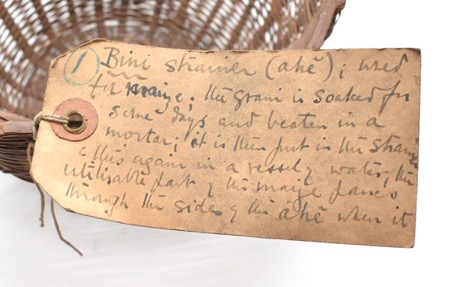 1 Bini strainer (ahê); used
for maize; the grain is soaked for
some days and beaten in a
mortar; it is then put in the strainer
& this again in a vessel of water; the
utilisable part of the maize passes
through the sides of the ahê when it